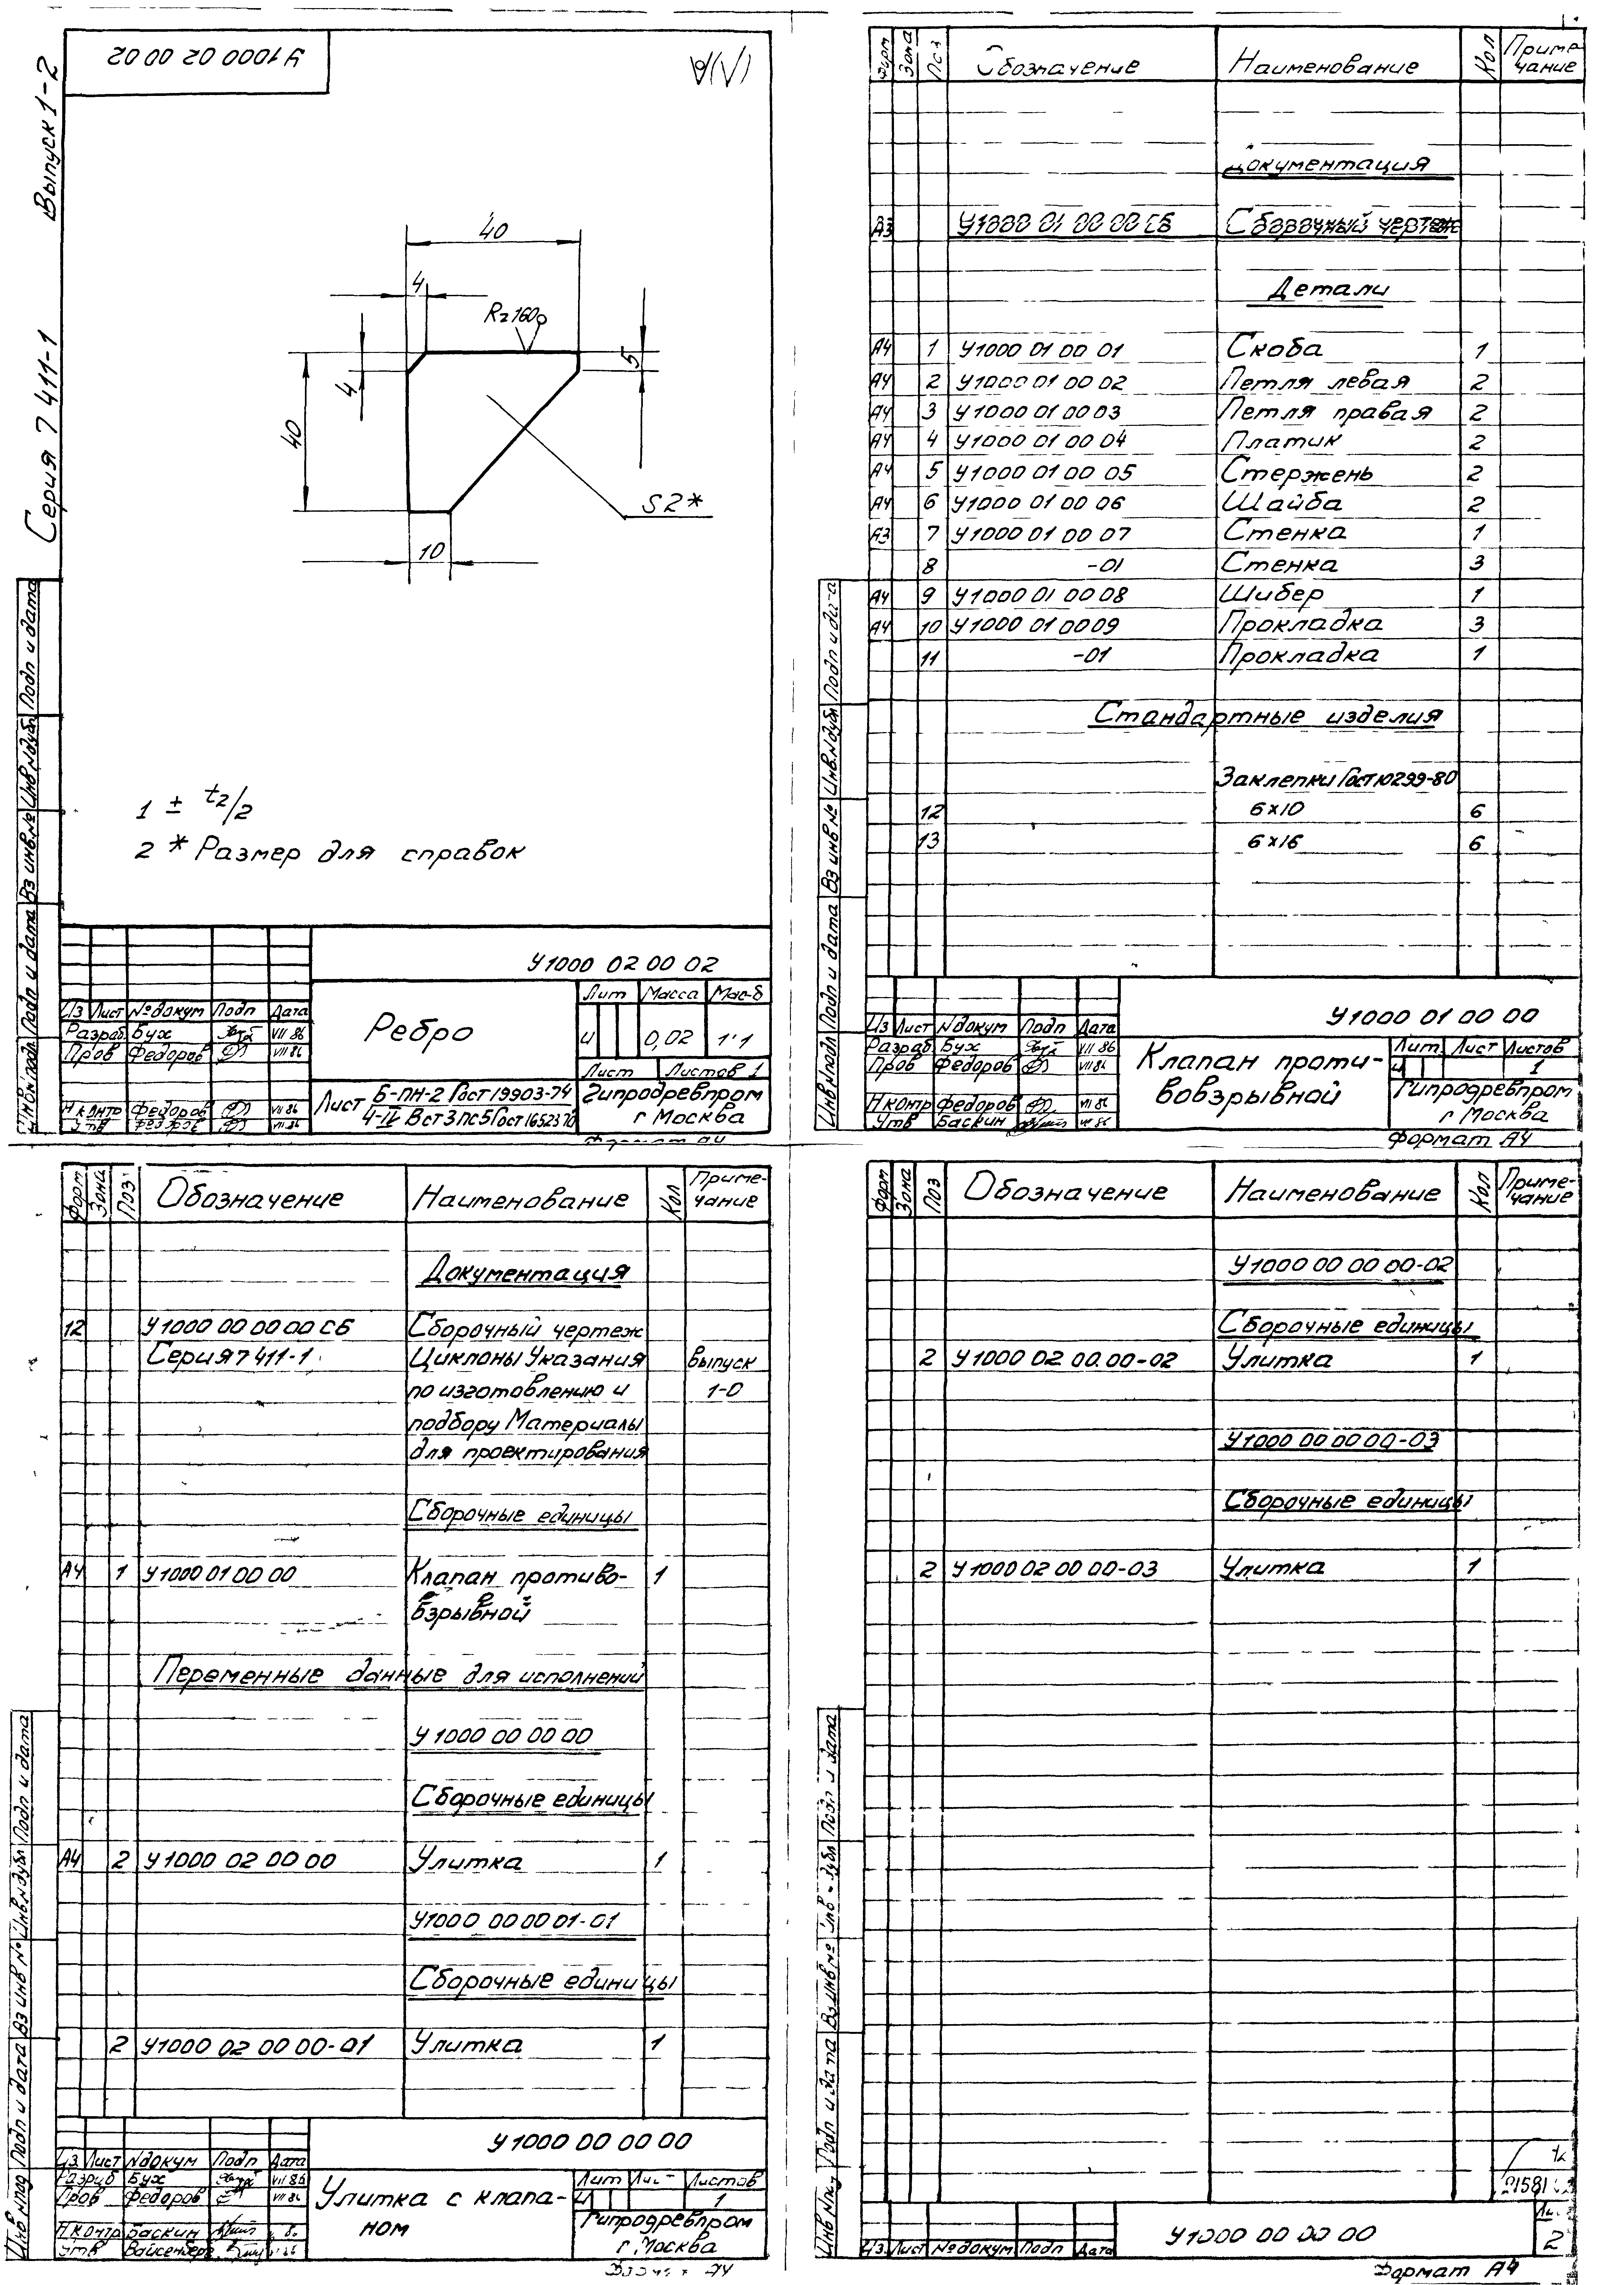 У1000 02 00 02
Серия 7 411-1 Выпуск 1-2
40
4
Rz160
5
4
40
S2*
10
1 ± t2/2
2 * Размер для справок
Инв № подл Подп и дата Вз инв № Инв № дубл Подп и дата
У1000 02 00 02
Ребро
Лит Масса Мас-б
И 0,02 1:1
Лист Листов 1
Из Лист № докум Подп Дата
Разраб Бух VII 86
Пров Федоров VII 86
Н контр Федоров VII 86
Утв Федоров VII 86
Лист Б-ПН-2 Гост 19903-74
4-IV Вст3пс5 Гост 16523-70
Гипродревпром
г Москва
Формат А4
Форм Зона Поз Обозначение Наименование Кол Приме-
чание
Документация
А3 У1000 01 00 00 СБ Сборочный чертеж
Детали
А4 1 У1000 01 00 01 Скоба 1
А4 2 У1000 01 00 02 Петля левая 2
А4 3 У1000 01 00 03 Петля правая 2
А4 4 У1000 01 00 04 Платик 2
А4 5 У1000 01 00 05 Стержень 2
А4 6 У1000 01 00 06 Шайба 2
А3 7 У1000 01 00 07 Стенка 1
8 -01 Стенка 3
А4 9 У1000 01 00 08 Шибер 1
А4 10 У1000 01 00 09 Прокладка 3
11 -01 Прокладка 1
Стандартные изделия
Заклепки Гост 10299-80
12 6×10 6
13 6×16 6
Инв № подл Подп и дата Вз инв № Инв № дубл Подп и дата
У1000 01 00 00
Из Лист № докум Подп Дата
Разраб Бух VII 86
Пров Федоров VII 86
Н контр Федоров VII 86
Утв Баскин VII 86
Клапан проти-
вовзрывной
Лит Лист Листов
И 1
Гипродревпром
г Москва
Формат А4
Форм Зона Поз Обозначение Наименование Кол Приме-
чание
Документация
12 У1000 00 00 00 СБ Сборочный чертеж
Серия 7 411-1 Циклоны Указания выпуск
по изготовлению и 1-0
подбору Материалы
для проектирования
Сборочные единицы
А4 1 У1000 01 00 00 Клапан противо- 1
взрывной
Переменные данные для исполнений
У1000 00 00 00
Сборочные единицы
А4 2 У1000 02 00 00 Улитка 1
У1000 00 00 01-01
Сборочные единицы
2 У1000 02 00 00-01 Улитка 1
Инв № подл Подп и дата Вз инв № Инв № дубл Подп и дата
У1000 00 00 00
Из Лист № докум Подп Дата
Разраб Бух VII 86
Пров Федоров VII 86
Н контр Баскин
Утв Вайсенберг
Улитка с клапа-
ном
Лит Лист Листов
И 1
Гипродревпром
г Москва
Формат А4
Форм Зона Поз Обозначение Наименование Кол Приме-
чание
У1000 00 00 00-02
Сборочные единицы
2 У1000 02 00 00-02 Улитка 1
У1000 00 00 00-03
Сборочные единицы
2 У1000 02 00 00-03 Улитка 1
Инв № подл Подп и дата Вз инв № Инв № дубл Подп и дата
21581
Из Лист № докум Подп Дата
У1000 00 00 00
2
Формат А4